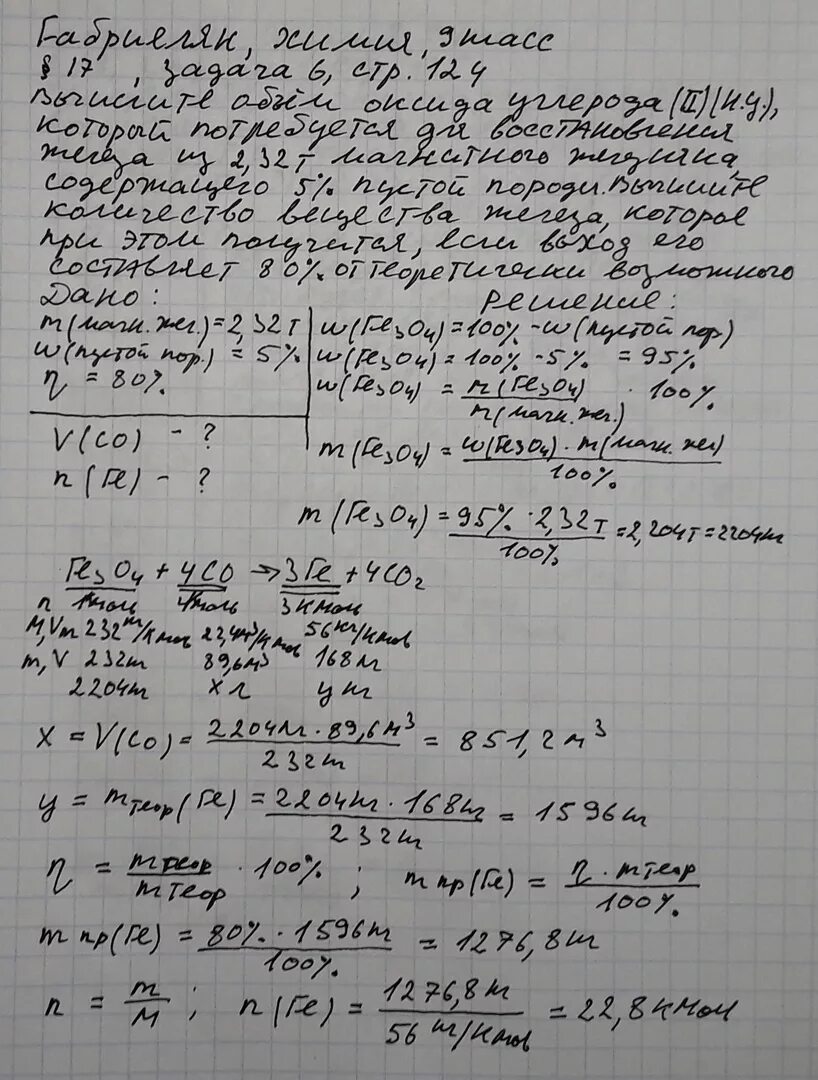 Габриелян, химия, 9 класс
§ 17, задача 6, стр. 124
Вычислите объём оксида углерода (II) (н.у.),
который потребуется для восстановления
железа из 2,32т магнитного железняка,
содержащего 5% пустой породы. Вычислите
количество вещества железа, которое
при этом получится, если выход его
составляет 80% от теоретически возможного
Дано: Решение:
m(магн.жел.)=2,32т w(Fe3O4)=100%-w(пустой пор.)
w(пустой пор.)=5% w(Fe3O4)=100%-5%=95%
η=80% w(Fe3O4)=m(Fe3O4)/m(магн.жел.)·100%
V(CO)-? m(Fe3O4)=w(Fe3O4)·m(магн.жел)/100%
n(Fe)-?
m(Fe3O4)=95%·2,32т/100%=2,204т=2204кг
Fe3O4+4CO→3Fe+4CO2
n 1кмоль 4кмоль 3кмоль
M,Vm 232кг/кмоль 22,4м³/кмоль 56кг/кмоль
m,V 232кг 89,6м³ 168кг
2204кг x л y кг
x=V(CO)=2204кг·89,6м³/232кг=851,2м³
y=mтеор(Fe)=2204кг·168кг/232кг=1596кг
η=mтеор/mтеор·100%; mпр(Fe)=η·mтеор/100%
mпр(Fe)=80%·1596кг/100%=1276,8кг
n=m/M; n(Fe)=1276,8кг/56кг/кмоль=22,8кмоль